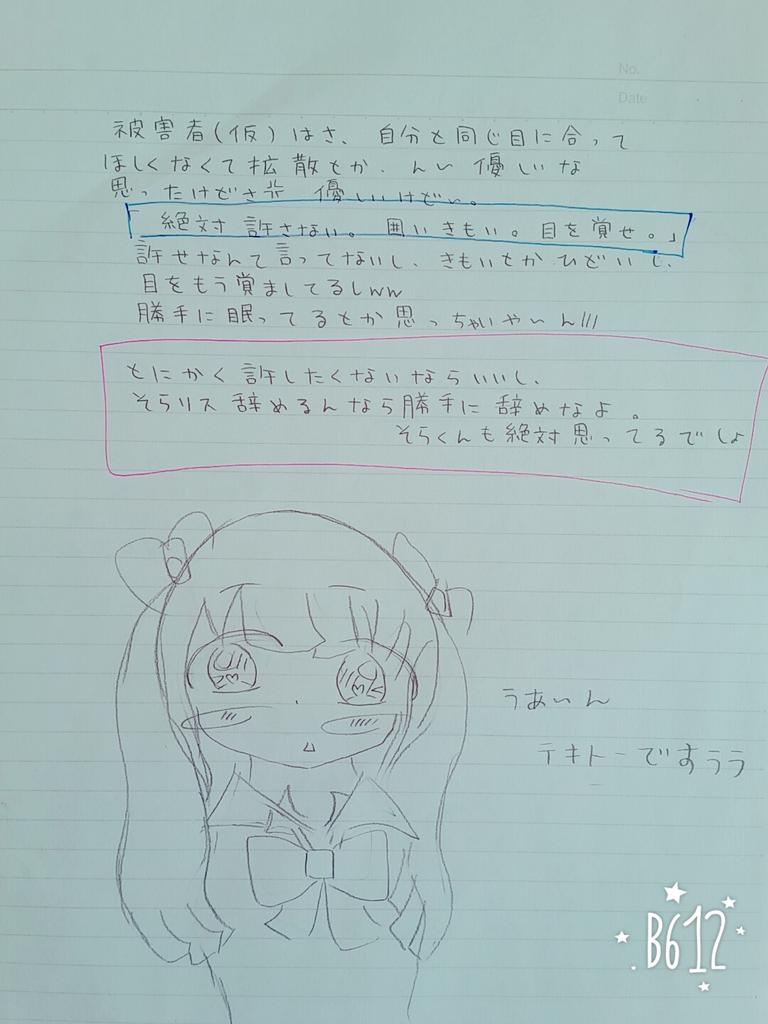 No.
Date
被害者(仮)はさ、自分と同じ目に合って
ほしくなくて拡散とか、んい 優しいな
思ったけどさ 優しいけどい。
「絶対 許さない。囲いきもい。目を覚せ。」
許せなんて言ってないし、きもいとかひどいし、
目をもう覚ましてるしww
勝手に眠ってるとか思っちゃいやいん!!!
とにかく許したくないならいいし、
そらリス辞めるんなら勝手に辞めなよ。
そらくんも絶対思ってるでしょ
うあいん
テキトーですうう
B612